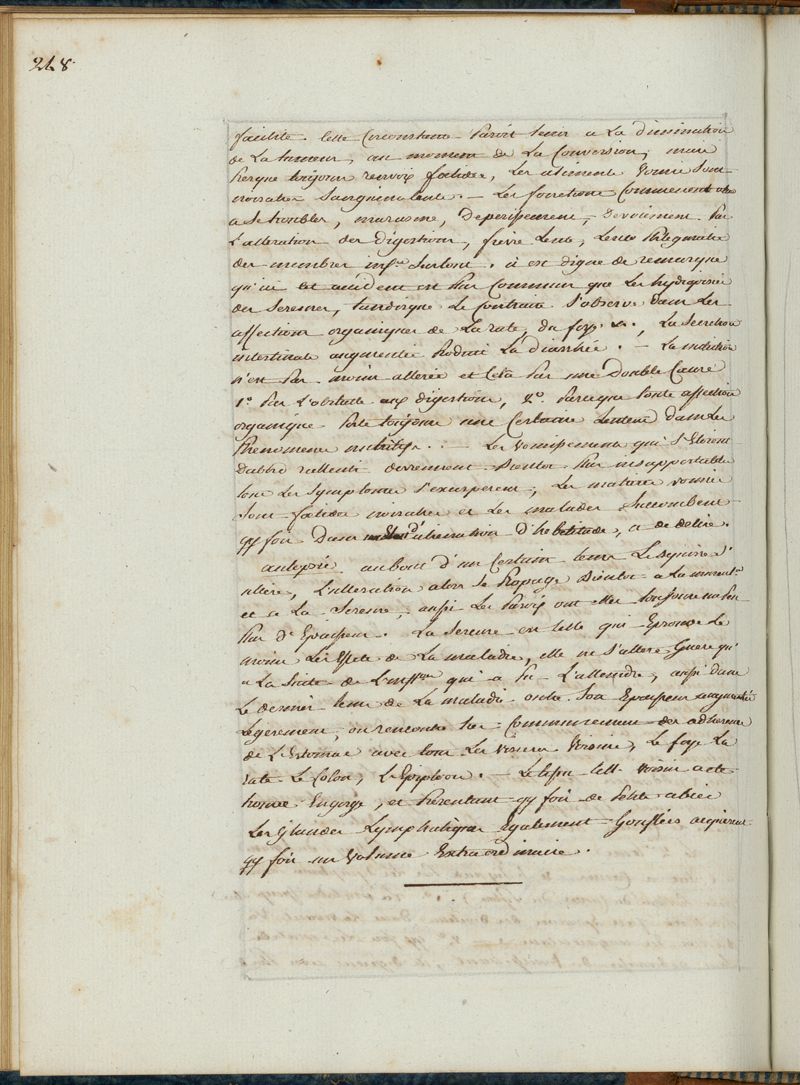 248
facilité. Cette Circonstance Paroit tenir a La diminution
de La tumeur, au moment de La Conversion, mais
Presque toujours renvois fœtides, Les aliments Vomis sont
noiratres Sanguinolents. — Les fonctions Commencent
a Se troubler, marasme, deperissement, devoiement Par
L'alteration des digestions, fievre Lente, Leuco Phlegmatie
des membres infrs Surtout. il est digne de remarque
qu'ici cet accident est Plus Commun que Les hydropisies
du Sereuses, tandisque Le Contraire S'observe dans Les
affections organiques de La rate, du foye &c, La Secretion
intestinale augmentée Produit La diarrhée. — La nutrition
n'est Pas moins alterée et Cela Par une double Cause
1.° Par L'obstacle aux digestions, 2.° Parceque toute affection
organique Porte toujours une Certaine Lenteur dans Les
Phenomenes nutritifs. — Les vomissements qui S'etoient
Dabord rallenti deviennent Bientot Plus insupportables
tous Les Symptomes S'exasperent, Les matieres vomies
Sont fœtides noiratres et Les malades Succombent
qq fois Dans d'alienation d'hebetude, et de delire.
autopsie. au bout d'un Certain tems Le
altere, L'alteration alors Se Propage Bientot a La
et a La Sereuse, aussi Les Parois ont elles
Plus d'Epaisseur. La Sereuse est celle qui Eprouve Le
moins Les Effets de La maladie, elle ne S'altere Guere qu'
a La Suite de L'inflton qui a Pu L'atteindre, aussi dans
Le dernier tems de La maladie outre Son Epaisseur augmentée
Legerement, on rencontre Communement des adherences
de L'Estomac avec tous Les visceres Voisins, Le foye La
rate Le Colon, L'Epiploon. — Le tissu Cell. voisin
trouve Engorgé, et Presentant qq fois de Petits abcès
Les Glandes Lymphatiques Egalement Gonflées acquierent
qq fois un Volume Extraordinaire.